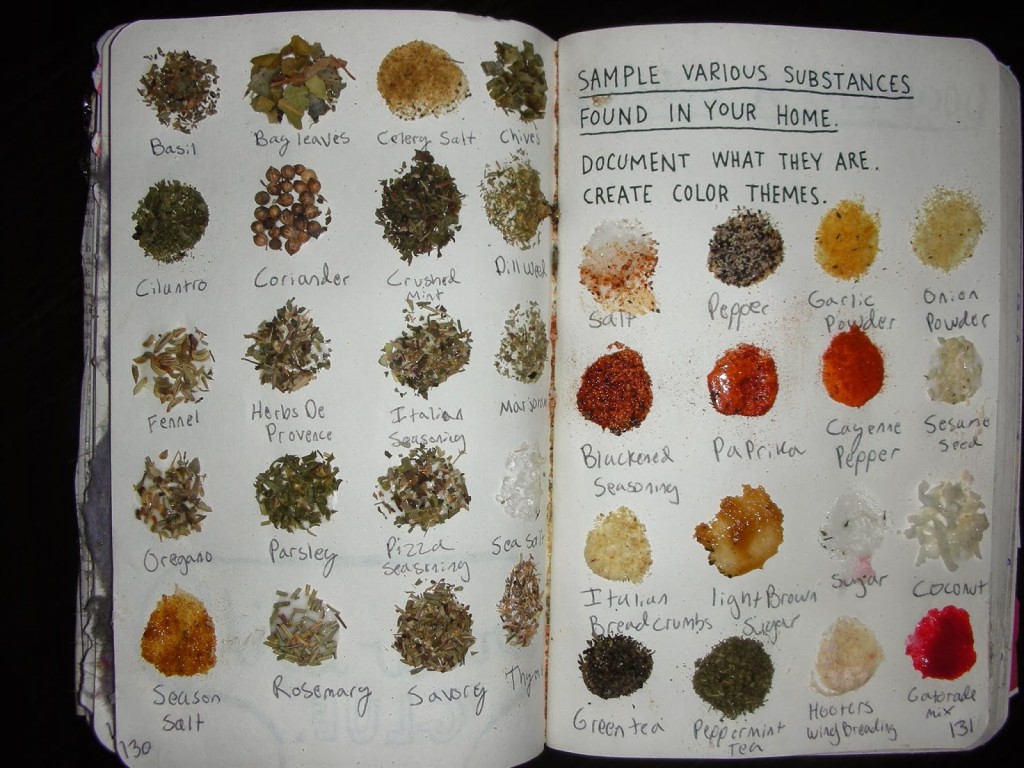 Basil
Bay leaves
Celery Salt
Chives
Cilantro
Coriander
Crushed
Mint
Dill Weed
Fennel
Herbs De
Provence
Italian
Seasoning
Marjoram
Oregano
Parsley
Pizza
Seasoning
Sea Salt
Season
Salt
Rosemary
Savory
Thyme
130
SAMPLE VARIOUS SUBSTANCES
FOUND IN YOUR HOME.
DOCUMENT WHAT THEY ARE.
CREATE COLOR THEMES.
Salt
Pepper
Garlic
Powder
Onion
Powder
Blackened
Seasoning
Paprika
Cayenne
Pepper
Sesame
Seed
Italian
Breadcrumbs
light Brown
Sugar
Sugar
Coconut
Green tea
Peppermint
Tea
Hooters
Wing Breading
Gatorade
Mix
131